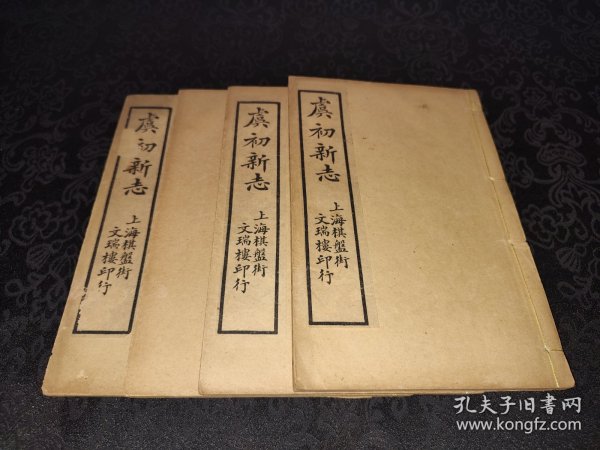 虞初新志
上海棋盤街
文瑞樓印行
虞初新志
上海棋盤街
文瑞樓印行
虞初新志
上海棋盤街
文瑞樓印行
孔夫子旧書网
www.kongfz.com